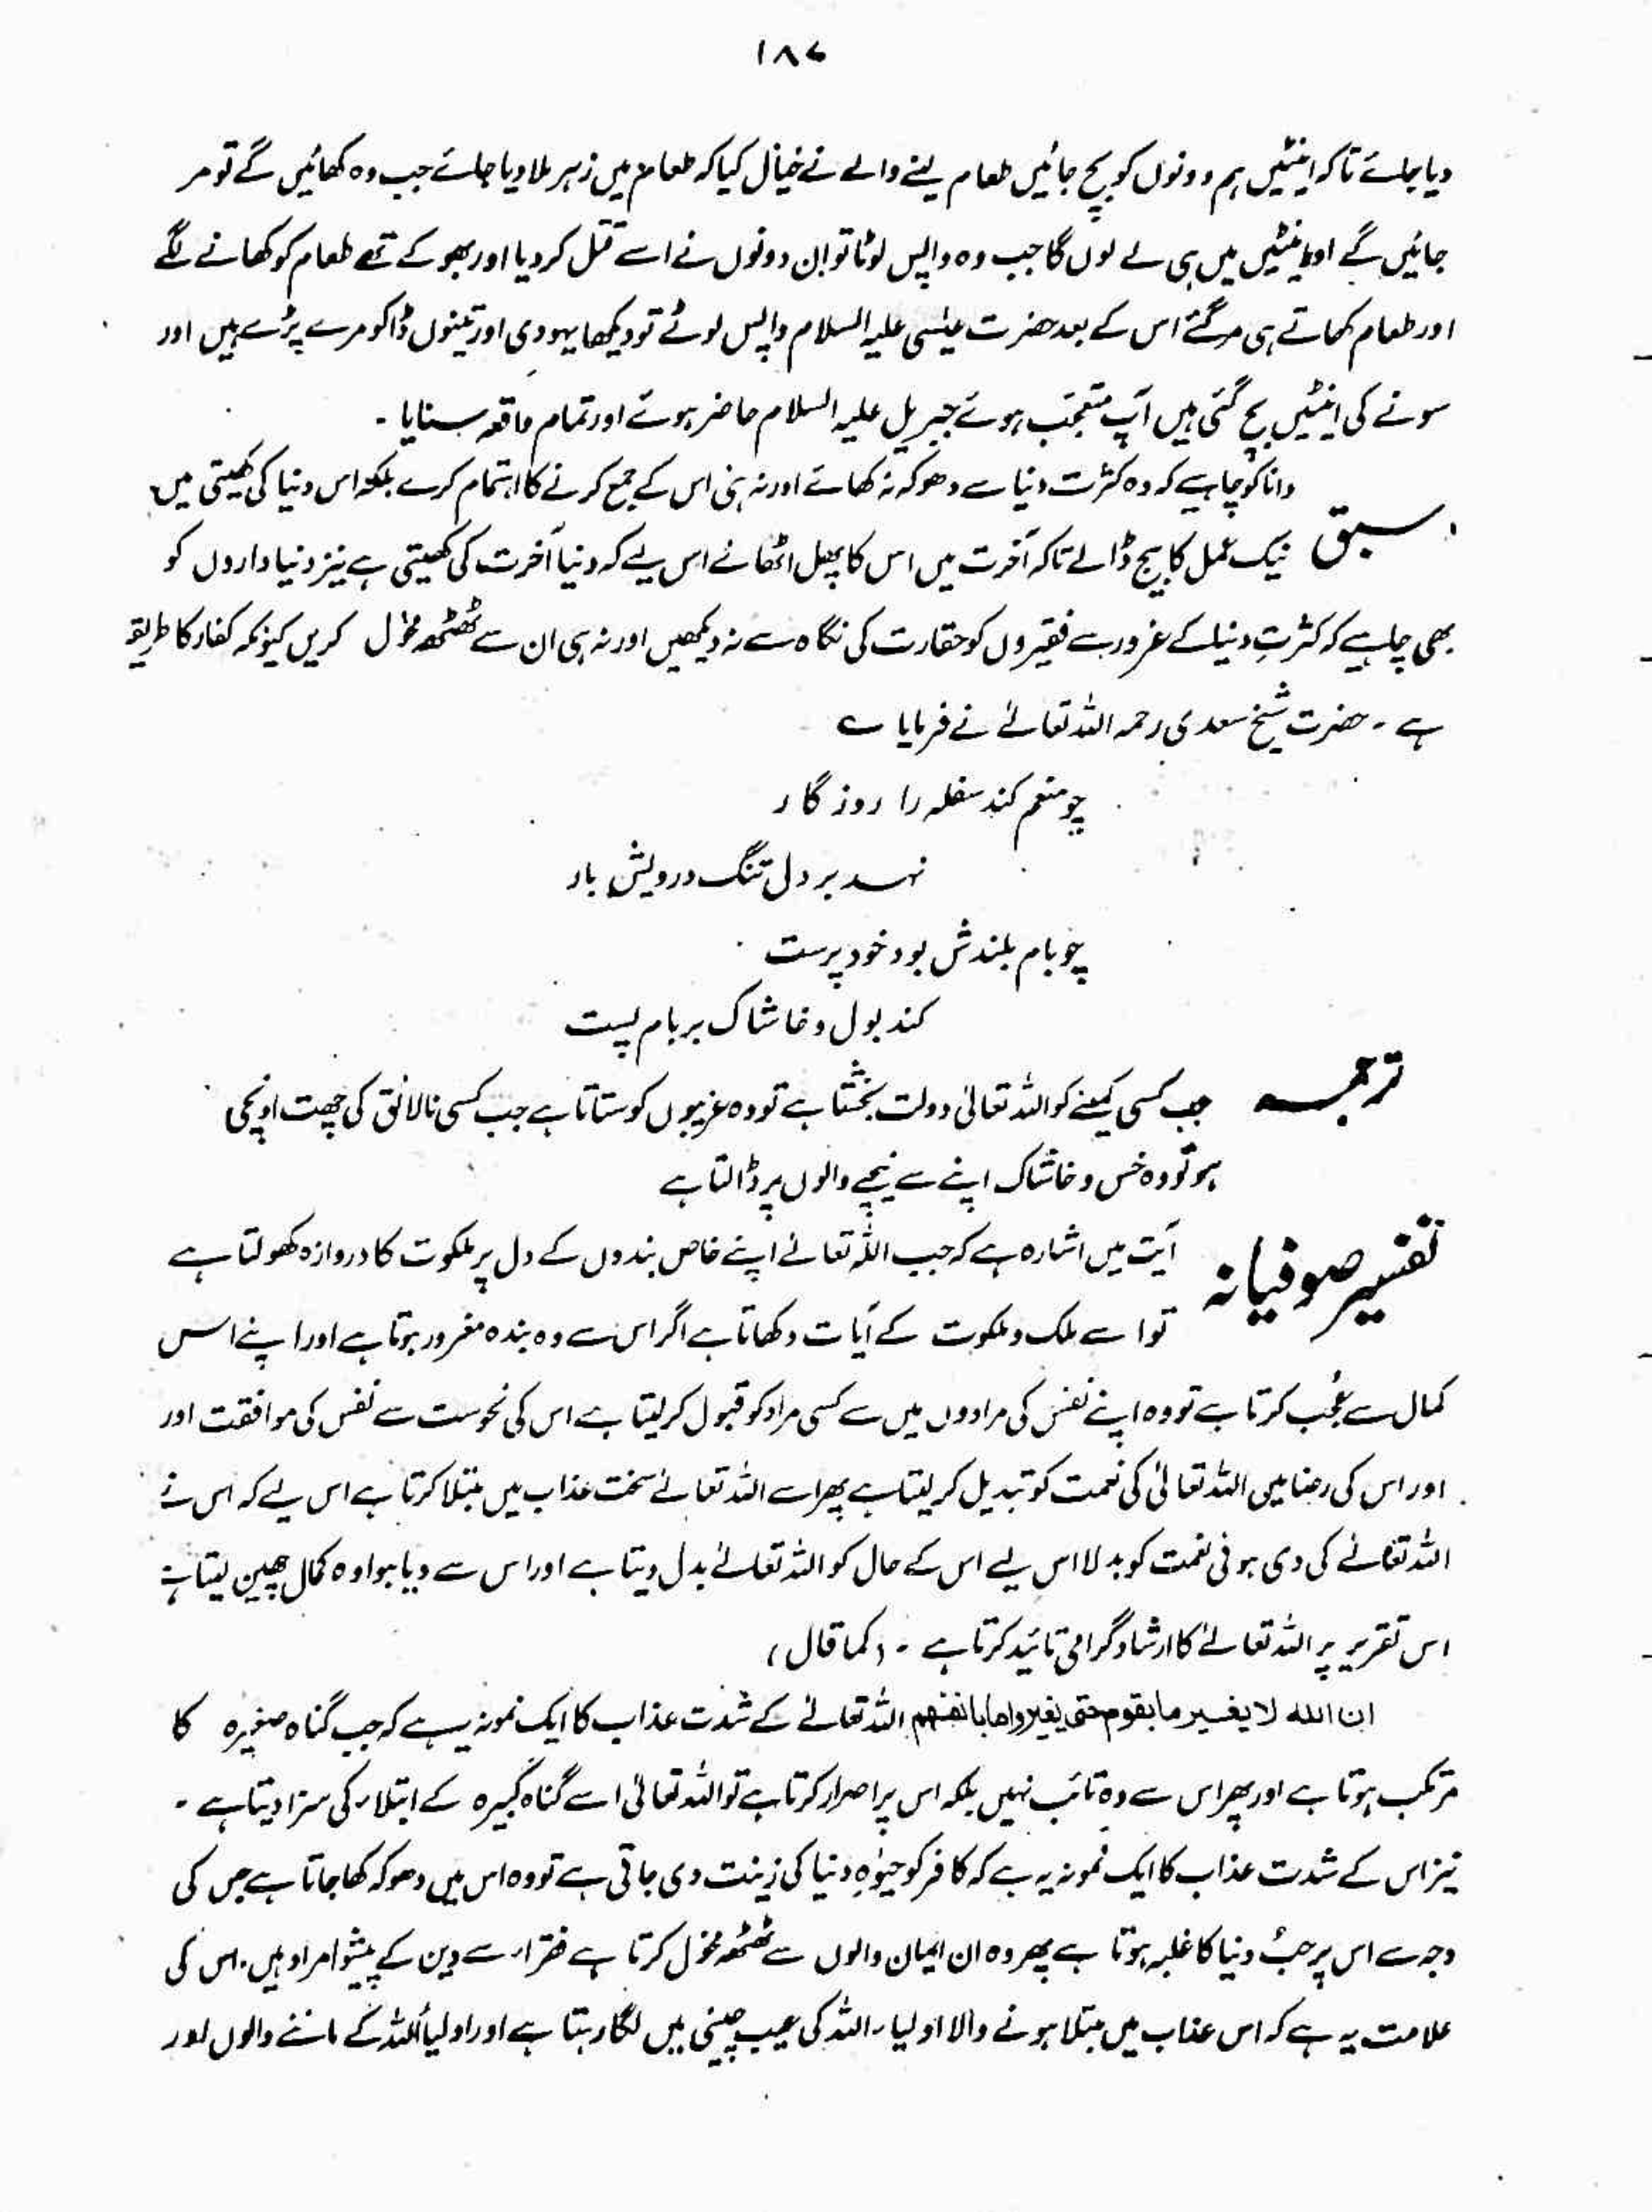 ۱۸۷
دیا جائے تاکہ اینٹیں ہم دونوں کو بچ جائیں طعام لینے والے نے خیال کیا کہ طعام میں زہر ملا دیا جائے جب وہ کھائیں گے تو مر
جائیں گے اور اینٹیں میں ہی لے لوں گا جب وہ واپس لوٹا تو ان دونوں نے اسے قتل کر دیا اور بھوکے تھے طعام کو کھانے لگے
اور طعام کھاتے ہی مر گئے اس کے بعد حضرت عیسٰی علیہ السلام واپس لوٹے تو دیکھا یہودی اور تینوں ڈاکو مرے پڑے ہیں اور
سونے کی اینٹیں بچ گئی ہیں آپ متعجب ہوئے جبریل علیہ السلام حاضر ہوئے اور تمام واقعہ سنایا ۔
دانا کو چاہیے کہ وہ کثرت دنیا سے دھوکہ نہ کھائے اور نہ ہی اس کے جمع کرنے کا اہتمام کرے بلکہ اس دنیا کی کھیتی میں
سبق نیک عمل کا بیج ڈالے تاکہ آخرت میں اس کا پھل اٹھائے اس لیے کہ دنیا آخرت کی کھیتی ہے نیز دنیا داروں کو
بھی چاہیے کہ کثرتِ دنیا کے غرور سے فقیروں کو حقارت کی نگاہ سے نہ دیکھیں اور نہ ہی ان سے ٹھٹھہ مخول کریں کیونکہ کفار کا طریقہ
ہے ۔ حضرت شیخ سعدی رحمہ اللہ تعالےٰ نے فرمایا ؎
چو منعم کند سفلہ را روزگار
نہد بر دل تنگ درویش بار
چو بام بلندش بود خود پرست
کند بول و خاشاک بر بام پست
ترجمہ جب کسی کمینے کو اللہ تعالیٰ دولت بخشتا ہے تو وہ غریبوں کو ستاتا ہے جب کسی نالائق کی چھت اونچی
ہو تو وہ خس و خاشاک اپنے سے نیچے والوں پر ڈالتا ہے
تفسیر صوفیانہ آیت میں اشارہ ہے کہ جب اللہ تعالےٰ اپنے خاص بندوں کے دل پر ملکوت کا دروازہ کھولتا ہے
تو اسے ملک و ملکوت کے آیات دکھاتا ہے اگر اس سے وہ بندہ مغرور ہوتا ہے اور اپنے اس
کمال سے عُجب کرتا ہے تو وہ اپنے نفس کی مرادوں میں سے کسی مراد کو قبول کر لیتا ہے اس کی نحوست سے نفس کی موافقت اور
اور اس کی رضا میں اللہ تعالیٰ کی نعمت کو تبدیل کر لیتا ہے پھر اسے اللہ تعالےٰ سخت عذاب میں مبتلا کرتا ہے اس لیے کہ اس نے
اللہ تعالےٰ کی دی ہوئی نعمت کو بدلا اس لیے اس کے حال کو اللہ تعالےٰ بدل دیتا ہے اور اس سے دیا ہوا وہ کمال چھین لیتا ہے
اس تقریر پر اللہ تعالےٰ کا ارشاد گرامی تائید کرتا ہے ۔ (کما قال)
ان الله لا یغیر ما بقوم حتی یغیروا ما بانفسهم اللہ تعالےٰ کے شدت عذاب کا ایک نمونہ یہ ہے کہ جب گناہ صغیرہ کا
مرتکب ہوتا ہے اور پھر اس سے وہ تائب نہیں بلکہ اس پر اصرار کرتا ہے تو اللہ تعالیٰ اسے گناہ کبیرہ کے ابتلاء کی سزا دیتا ہے ۔
نیز اس کے شدت عذاب کا ایک نمونہ یہ ہے کہ کافر کو حیوٰۃِ دنیا کی زینت دی جاتی ہے تو وہ اس میں دھوکہ کھا جاتا ہے جس کی
وجہ سے اس پر حبُّ دنیا کا غلبہ ہوتا ہے پھر وہ ان ایمان والوں سے ٹھٹھہ مخول کرتا ہے فقراء سے دین کے پیشوا مراد ہیں ۔ اس کی
علامت یہ ہے کہ اس عذاب میں مبتلا ہونے والا اولیاء اللہ کی عیب چینی میں لگا رہتا ہے اور اولیأ اللہ کے ماننے والوں اور